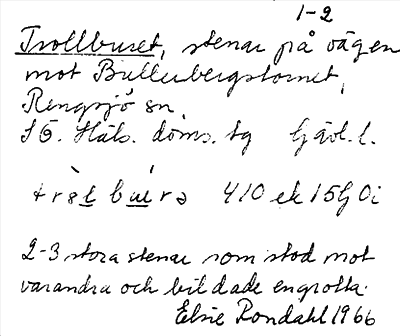 1-2
Trollburet, stenar på vägen
mot Bullerbergstornet,
Rengsjö sn,
SÖ. Häls. doms. tg Gävl. l.
410 ek 15G 0i
2-3 stora stenar som stod mot
varandra och bildade en grotta.
Elsie Rondahl 1966